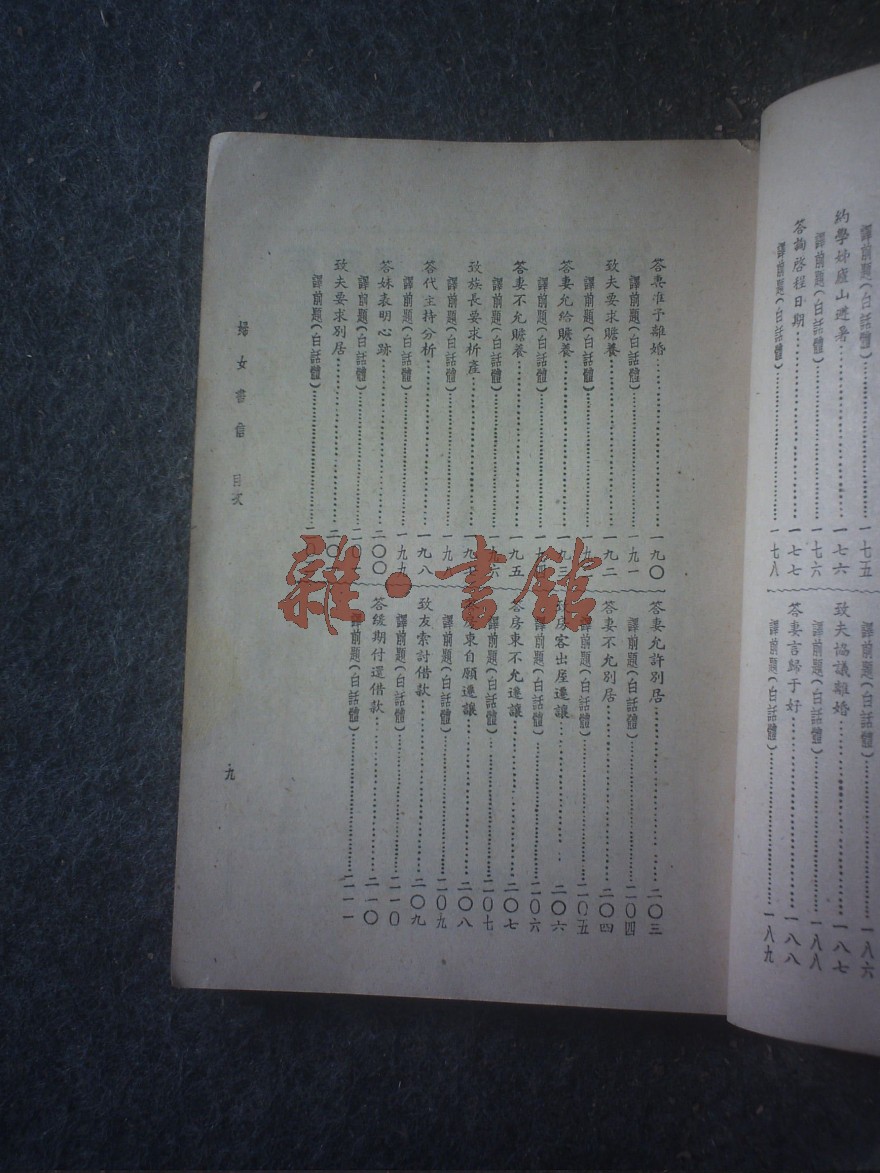 譯前題(白話體)
約學姊廬山避暑
譯前題(白話體)
答詢啓程日期
譯前題(白話體)
一七五
一七六
一七六
一七七
一七八
譯前題(白話體)
致夫協議離婚
譯前題(白話體)
答妻言歸于好
譯前題(白話體)
一八六
一八七
一八八
一八八
一八九
答妻准予離婚 一九〇
譯前題(白話體) 一九一
致夫要求贍養 一九二
譯前題(白話體)
答妻允給贍養 一九三
譯前題(白話體) 一九四
答妻不允贍養 一九五
譯前題(白話體) 一九六
致族長要求析產
譯前題(白話體)
答代主持分析 一九八
譯前題(白話體) 一九九
答妹表明心跡 二〇〇
譯前題(白話體)
致夫要求別居
譯前題(白話體)
答妻允許別居 二〇三
譯前題(白話體) 二〇四
答妻不允別居 二〇四
譯前題(白話體) 二〇五
致房客出屋遷讓 二〇六
譯前題(白話體) 二〇六
答房東不允遷讓 二〇七
譯前題(白話體) 二〇七
答房東自願遷讓 二〇八
譯前題(白話體) 二〇九
致友索討借款 二〇九
譯前題(白話體) 二一〇
答緩期付還借款 二一〇
譯前題(白話體) 二一一
婦女書信 目次
九
雜·書館